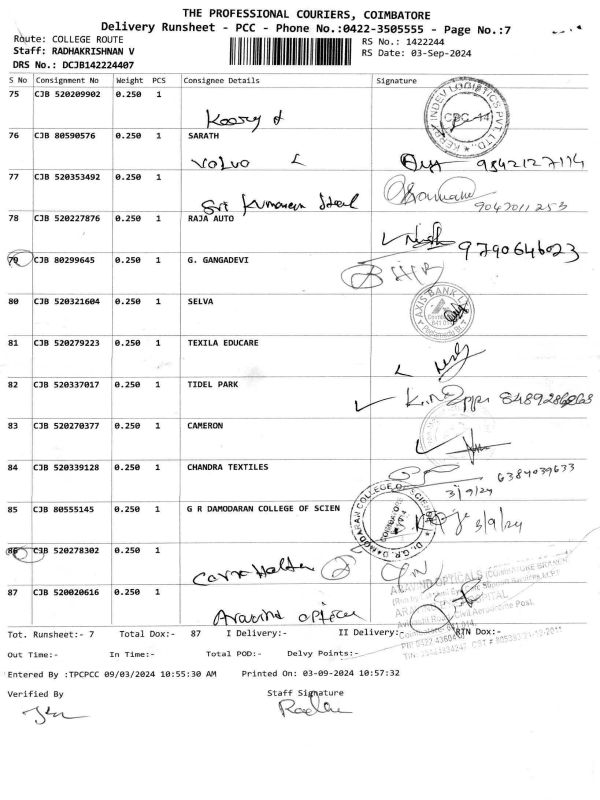 THE PROFESSIONAL COURIERS, COIMBATORE
Delivery Runsheet - PCC - Phone No.:0422-3505555 - Page No.:7
Route: COLLEGE ROUTE RS No.: 1422244
Staff: RADHAKRISHNAN V RS Date: 03-Sep-2024
DRS No.: DCJB142224407
S No Consignment No Weight PCS Consignee Details Signature
75 CJB 520209902 0.250 1
KERRY INDEV LOGISTICS PVT. LTD.
76 CJB 80590576 0.250 1 SARATH
Volvo
77 CJB 520353492 0.250 1
Sri Kumaran Steel 9047011253
78 CJB 520227876 0.250 1 RAJA AUTO
9790646023
79 CJB 80299645 0.250 1 G. GANGADEVI
80 CJB 520321604 0.250 1 SELVA
AXIS BANK
81 CJB 520279223 0.250 1 TEXILA EDUCARE
82 CJB 520337017 0.250 1 TIDEL PARK
83 CJB 520270377 0.250 1 CAMERON
84 CJB 520339128 0.250 1 CHANDRA TEXTILES
6384039633
3/9/24
85 CJB 80555145 0.250 1 G R DAMODARAN COLLEGE OF SCIEN
Dr. G.R. DAMODARAN COLLEGE OF SCIENCE
COIMBATORE
3/9/24
86 CJB 520278302 0.250 1
87 CJB 520020616 0.250 1
Aravind opticals
ARAVIND OPTICALS (COIMBATORE BRANCH)
Avinashi Road, Civil Aerodrome Post,
Tot. Runsheet:- 7 Total Dox:- 87 I Delivery:- II Delivery:- RTN Dox:-
Out Time:- In Time:- Total POD:- Delvy Points:-
Entered By :TPCPCC 09/03/2024 10:55:30 AM Printed On: 03-09-2024 10:57:32
Verified By Staff Signature